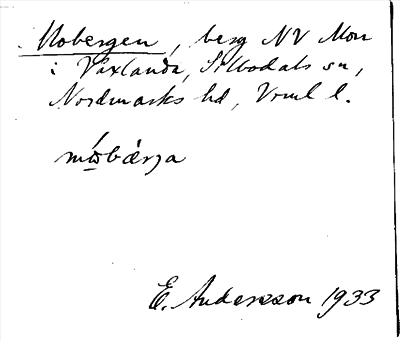 Mobergen, berg NV Mon
i Växlanda, Sillbodals sn,
Nordmarks hd, Vrml l.
mώ̲bær̀ja
E. Andersson 1933